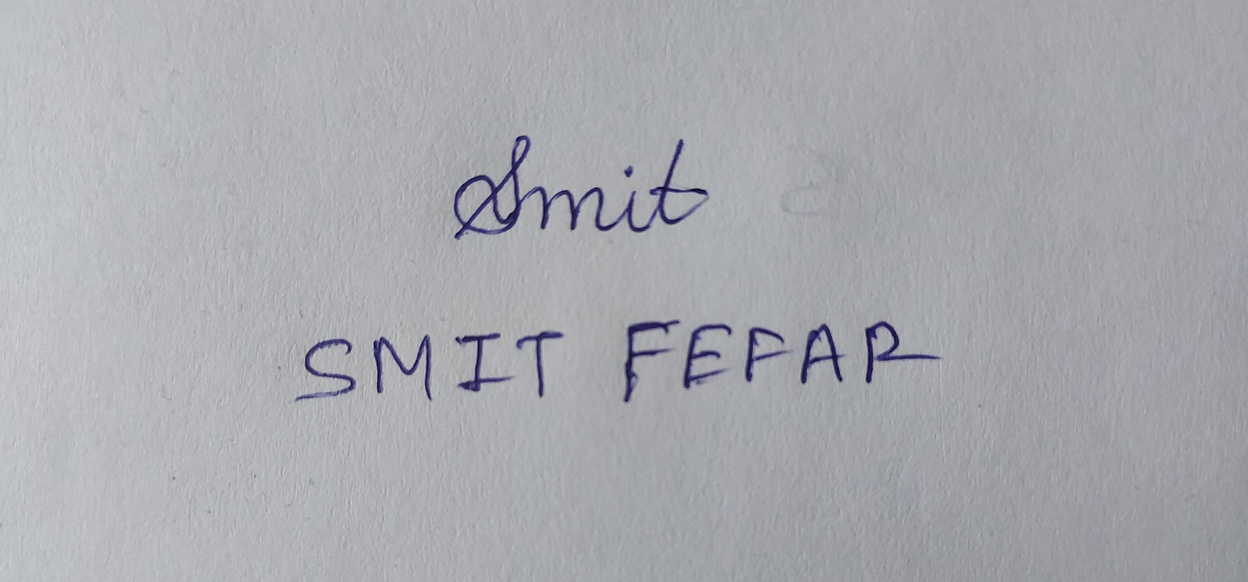 Smit
SMIT FEFAR